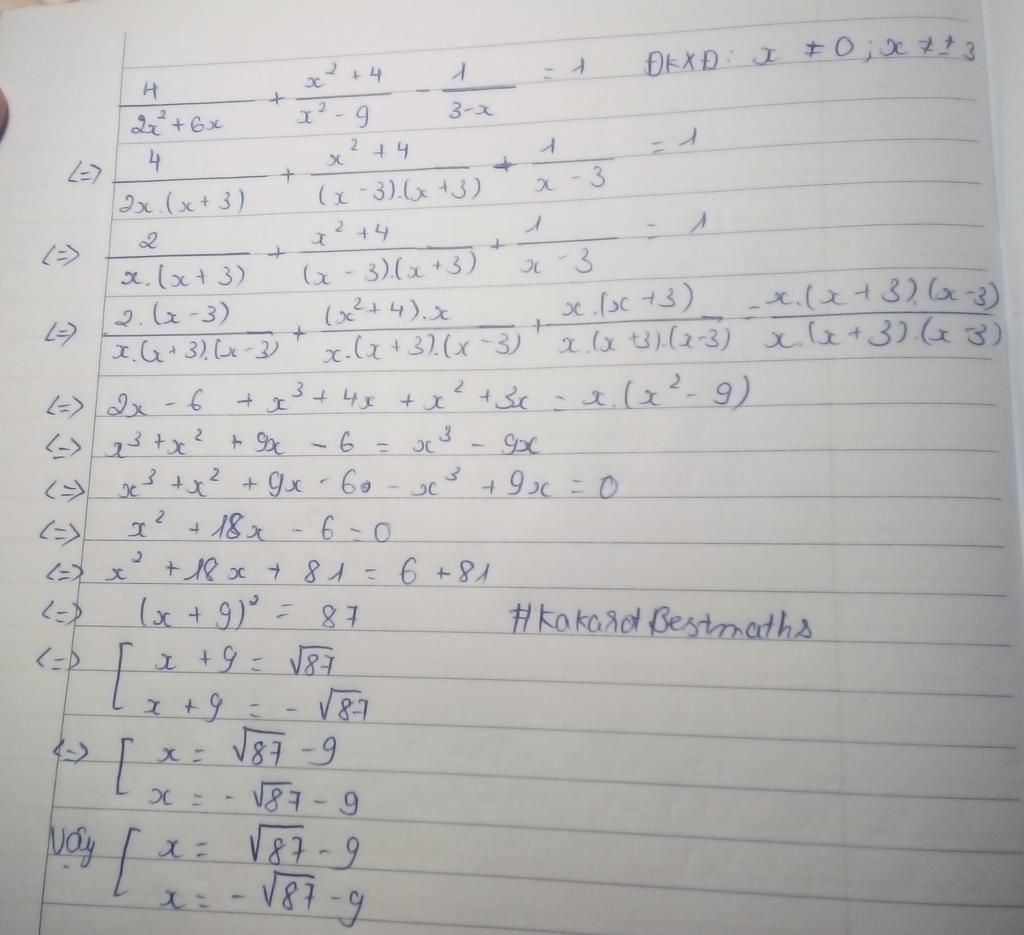 4/(2x² + 6x) + (x² + 4)/(x² - 9) - 1/(3-x) = 1 ĐKXĐ: x ≠ 0 ; x ≠ ± 3
<=> 4/(2x.(x + 3)) + (x² + 4)/((x - 3).(x + 3)) + 1/(x - 3) = 1
<=> 2/(x.(x + 3)) + (x² + 4)/((x - 3).(x + 3)) + 1/(x - 3) = 1
<=> (2.(x - 3))/(x.(x + 3).(x - 3)) + ((x² + 4).x)/(x.(x + 3).(x - 3)) + (x.(x + 3))/(x.(x + 3).(x - 3)) = (x.(x + 3).(x - 3))/(x.(x + 3).(x - 3))
<=> 2x - 6 + x³ + 4x + x² + 3x = x.(x² - 9)
<=> x³ + x² + 9x - 6 = x³ - 9x
<=> x³ + x² + 9x - 6 - x³ + 9x = 0
<=> x² + 18x - 6 = 0
<=> x² + 18x + 81 = 6 + 81
<=> (x + 9)² = 87 #KakarotBestmaths
<=> [ x + 9 = √87
x + 9 = - √87
<=> [ x = √87 - 9
x = - √87 - 9
Vậy [ x = √87 - 9
x = - √87 - 9